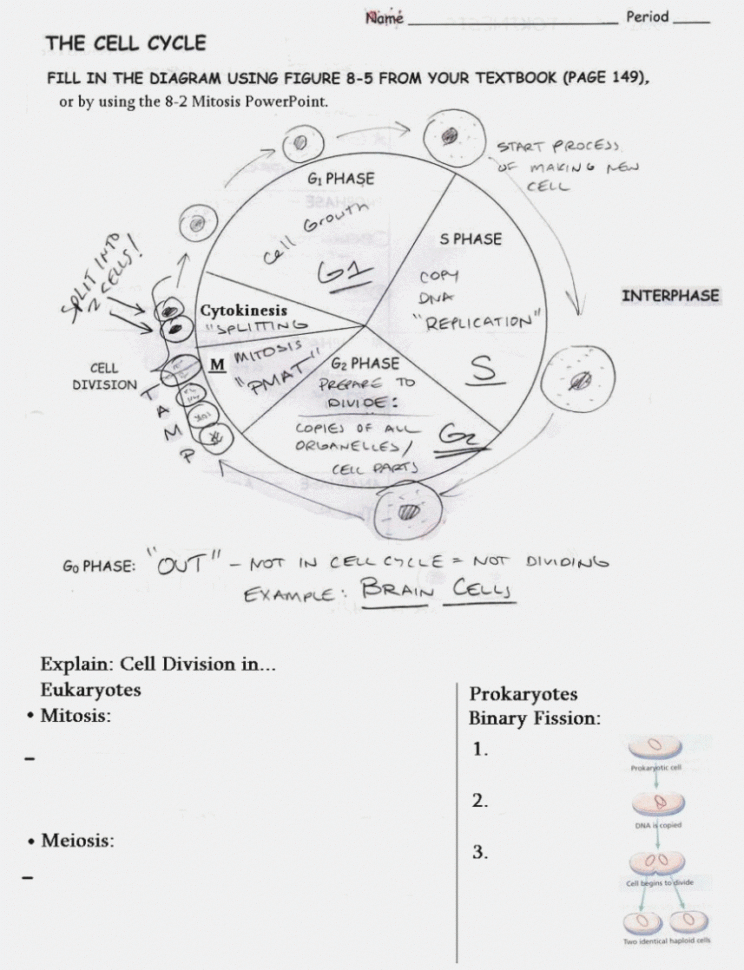 Name ____ Period ____
THE CELL CYCLE
FILL IN THE DIAGRAM USING FIGURE 8-5 FROM YOUR TEXTBOOK (PAGE 149),
or by using the 8-2 Mitosis PowerPoint.
START PROCESS
OF MAKING NEW
CELL
G1 PHASE
Cell Growth
G1
S PHASE
COPY
DNA
"REPLICATION"
S
INTERPHASE
SPLIT INTO
2 CELLS!
Cytokinesis
"SPLITTING
CELL
DIVISION
M MITOSIS
"PMAT"
T
A
M
P
G2 PHASE
PREPARE TO
DIVIDE:
COPIES OF ALL
ORGANELLES/
CELL PARTS
G2
G0 PHASE: "OUT" - NOT IN CELL CYCLE = NOT DIVIDING
EXAMPLE: BRAIN CELLS
Explain: Cell Division in...
Eukaryotes
• Mitosis:
–
• Meiosis:
–
Prokaryotes
Binary Fission:
1.
2.
3.
Prokaryotic cell
DNA is copied
Cell begins to divide
Two identical haploid cells